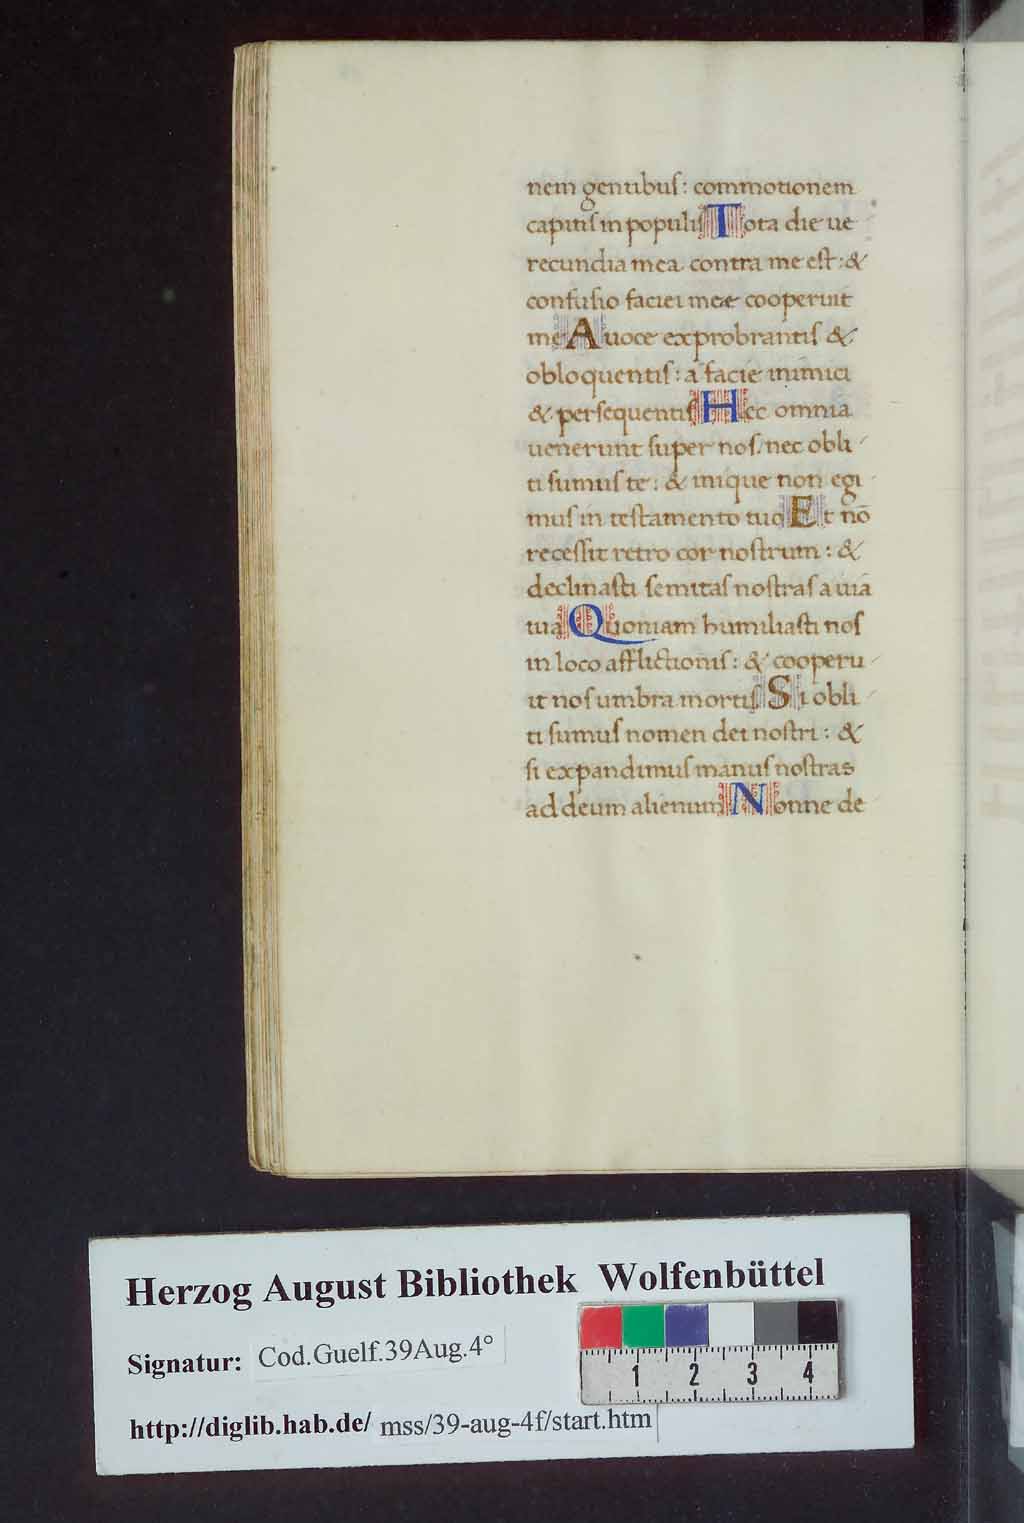 nem gentibuſ: commotionem
capitiſ in populiſ Tota die ue
recundia mea contra me eſt: &
confuſio faciei meæ cooperuit
me A uoce exprobrantiſ &
obloquentiſ: a facie inimici
& perſequentiſ Hec omnia
uenerunt ſuper noſ, nec obli
ti ſumuſ te: & inique non egi
muſ in teſtamento tuo Et nō
receſſit retro cor noſtrum: &
declinaſti ſemitaſ noſtraſ a uia
tua Quoniam humiliaſti noſ
in loco afflictioniſ: & cooperu
it noſ umbra mortiſ Si obli
ti ſumuſ nomen dei noſtri: &
ſi expandimuſ manuſ noſtras
ad deum alienum Nonne de
Herzog August Bibliothek Wolfenbüttel
Signatur: Cod.Guelf.39Aug.4°
http://diglib.hab.de/ mss/39-aug-4f/start.htm
1 2 3 4